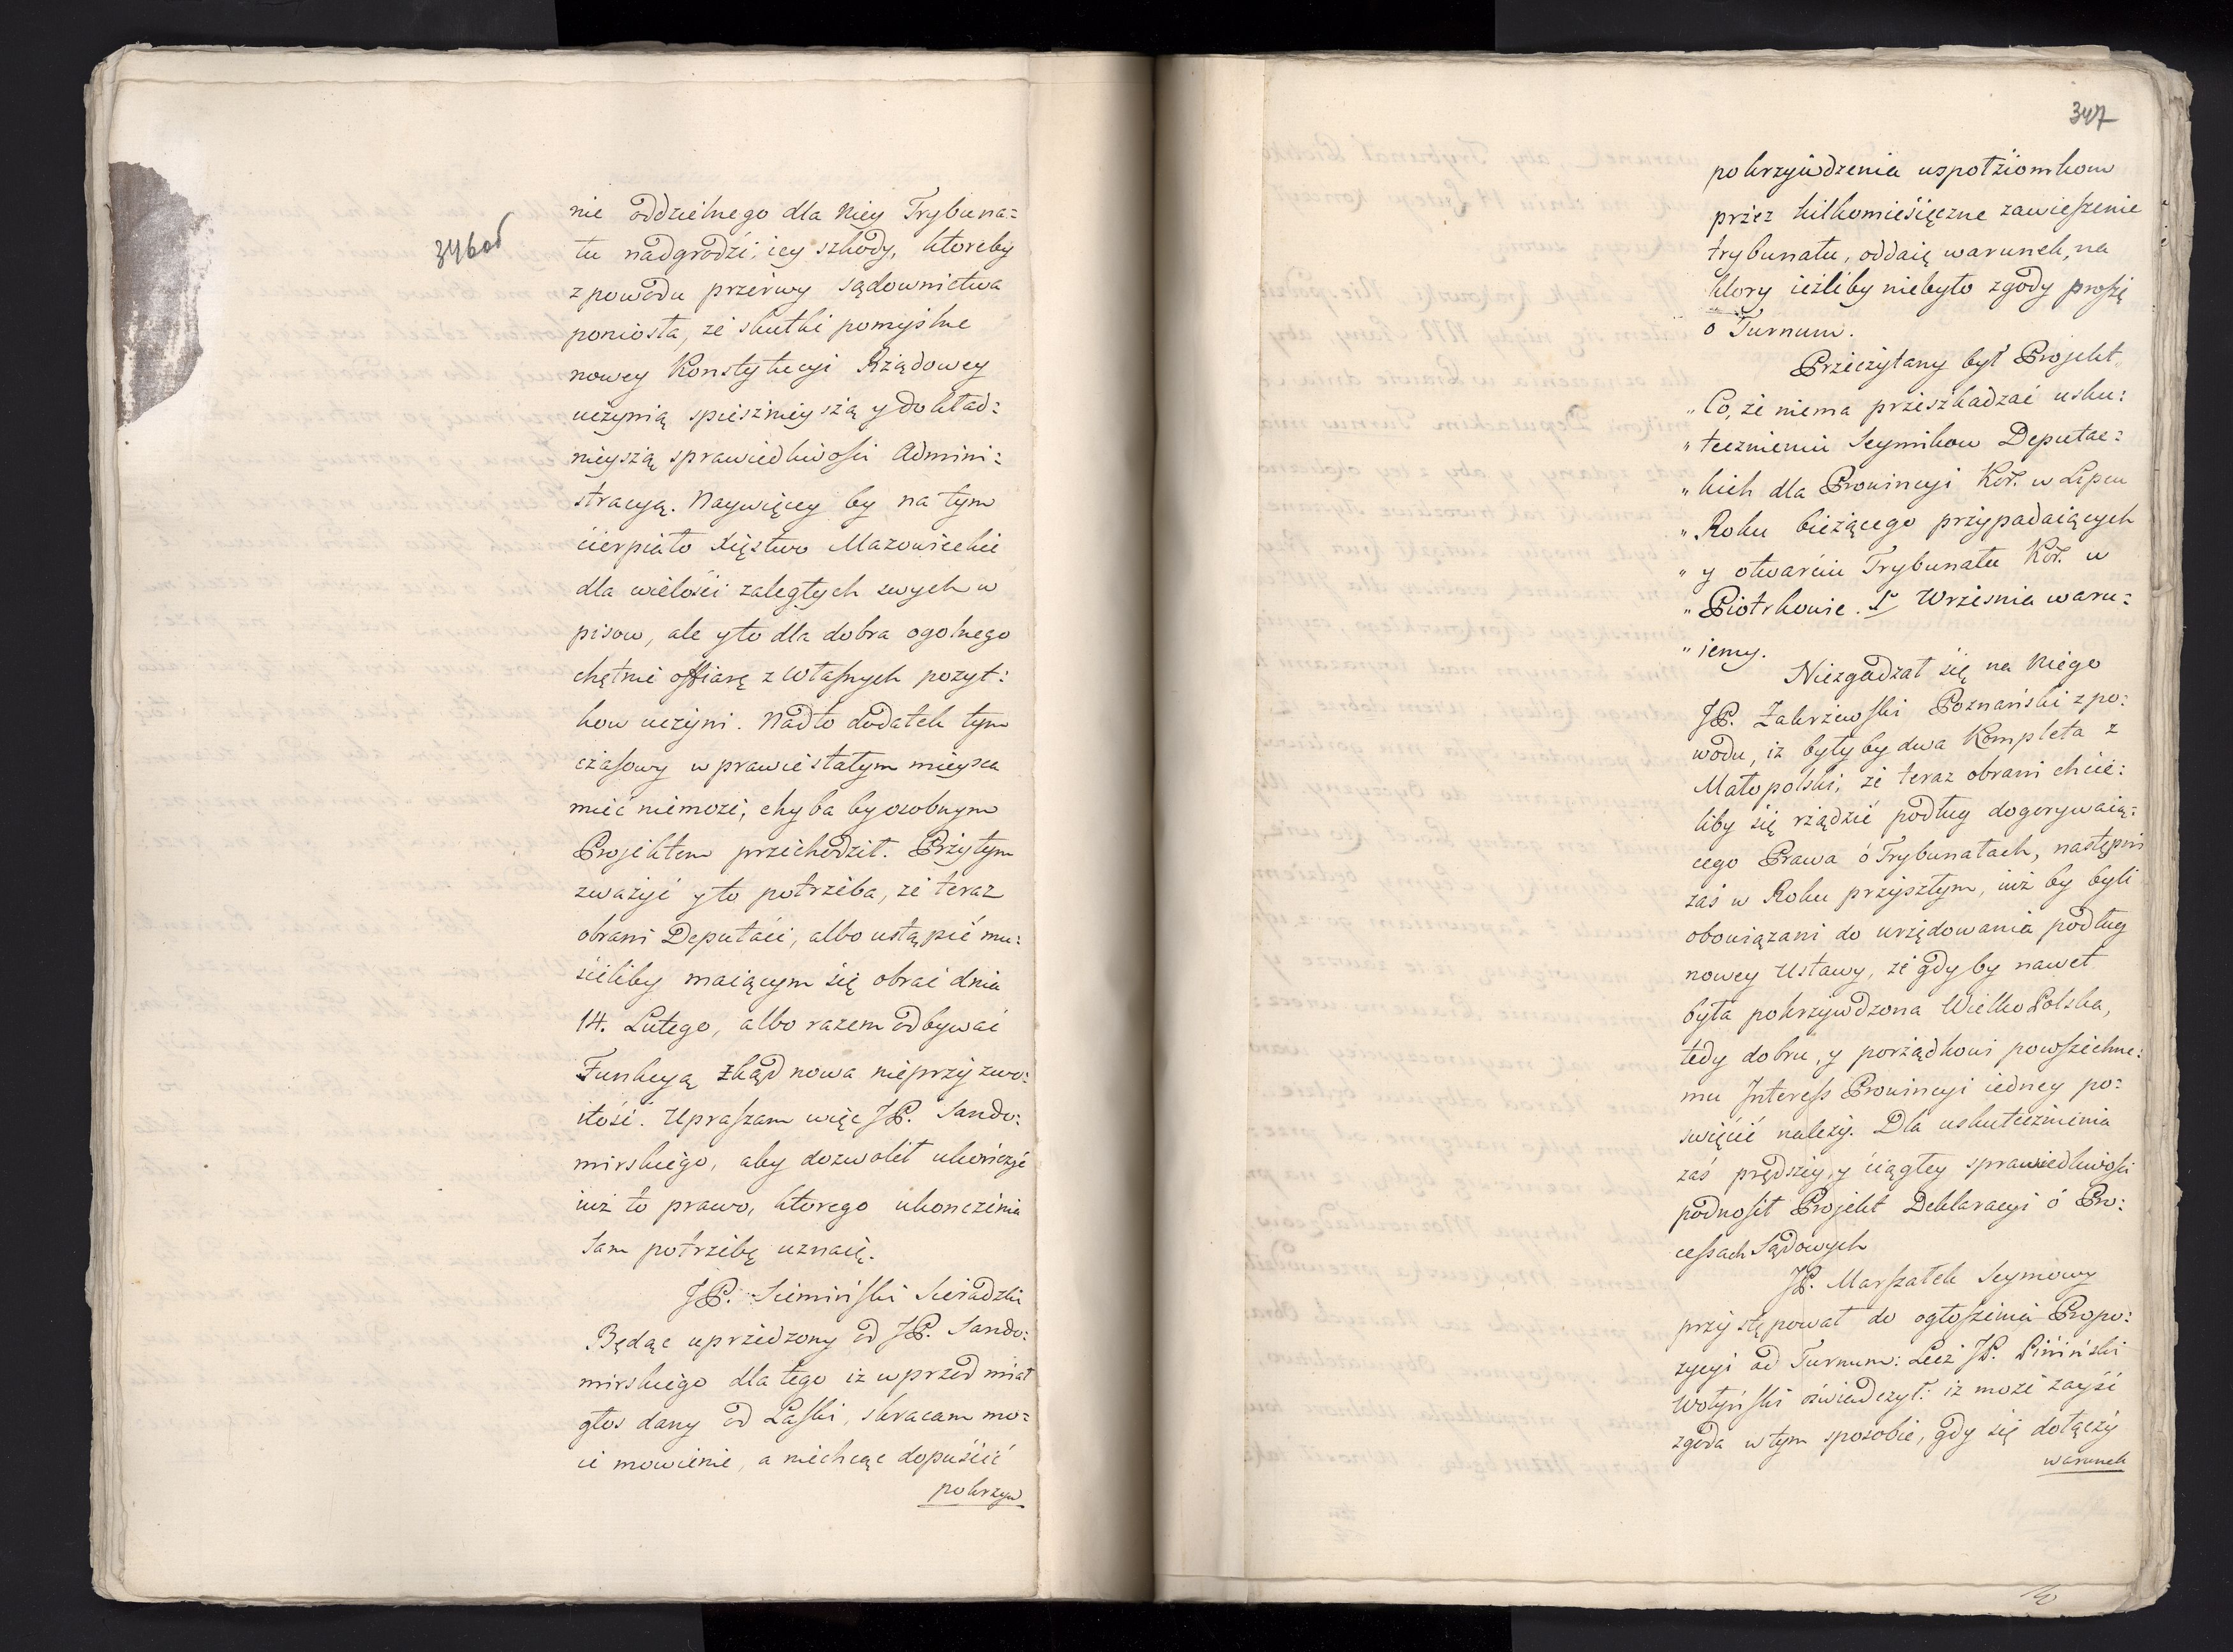 346od
nie oddzielnego dla niey Trybuna:
łu nadgrodzi iey szkody, ktoreby
z powodu przerwy sądownictwa
poniosła, że skutki pomyślne
nowey Konstytucyi Rządowey
uczynią spieszniejszą y dokład:
nieyszą sprawiedliwości Admini:
stracyą. Naywięcey by na tym
cierpiało Xięstwo Mazowieckie
dla wielości zaległych swych w
pisow, ale y to dla dobra ogolnego
chętnie offiarę z własnych pozyt:
kow uczyni. Nadto dodatek tym
czasowy w prawie stałym mieysca
mieć niemoże, chyba by osobnym
Projektem przechodził. Przytym
zważyć y to potrzeba, że teraz
obrani Deputaci, albo ustąpić mu:
sieliby maiącym się obrać dnia
14. Lutego, albo razem odbywać
Funkcyą zkąd nowa nieprzyzwo:
itość. Upraszam więc JP. Sando:
mirskiego, aby dozwolił ukończyć
iuż to prawo, ktorego ukonczenia
sam potrzebę uznaię.
JP. Siemiński Sieradzki
Będąc uprzedzony od JP. Sando:
mirskiego dla tego iż wprzod miał
głos dany od Laski, skracam mo:
ie mowienie, a niechcąc dopuścić
pokrzyw
347
pokrzywdzenia wspołziomkow
przez kilkomiesięczne zawieszenie
trybunału, oddaię warunek, na
ktory ieżliby niebyło zgody proszę
o Turnum.
Przeczytany był Projekt„
„Co, że niema przeszkadzać usku:
„tecznieniu Seymikow Deputac:
„kich dla Prowincyi Kor. w Lipcu
„Roku bieżącego przypadaiących
„y otwarciu Trybunału Kor. w
„Piotrkowie. 1 Września waru:
„iemy.
Niezgadzał się na niego
JP. Zakrzewski Poznański z po:
wodu, iż byłyby dwa Kompleta z
Małopolski, że teraz obrani chcie:
liby się rządzić podług dogorywaią:
cego Prawa o Trybunałach, następni
zaś w Roku przyszłym, iuż by byli
obowiązani do urzędowania podług
nowey Ustawy, że gdyby nawet
była pokrzywdzona Wielko Polska,
tedy dobru, y porządkowi powszechne:
mu Interess Prowincyi iedney po:
święcić należy. Dla uskutecznienia
zaś prędszey, y ciągłey sprawiedliwości
podnosił Projekt Deklaracyi o Pro:
cessach Sądowych
JP. Marszałek Seymowy
przystępował do ogłoszenia Propo:
zycyi ad Turnum: Lecz JP. Piniński
Wołyński oświadczył: iż może zayść
zgoda w tym sposobie, gdy się dołączy
warunek